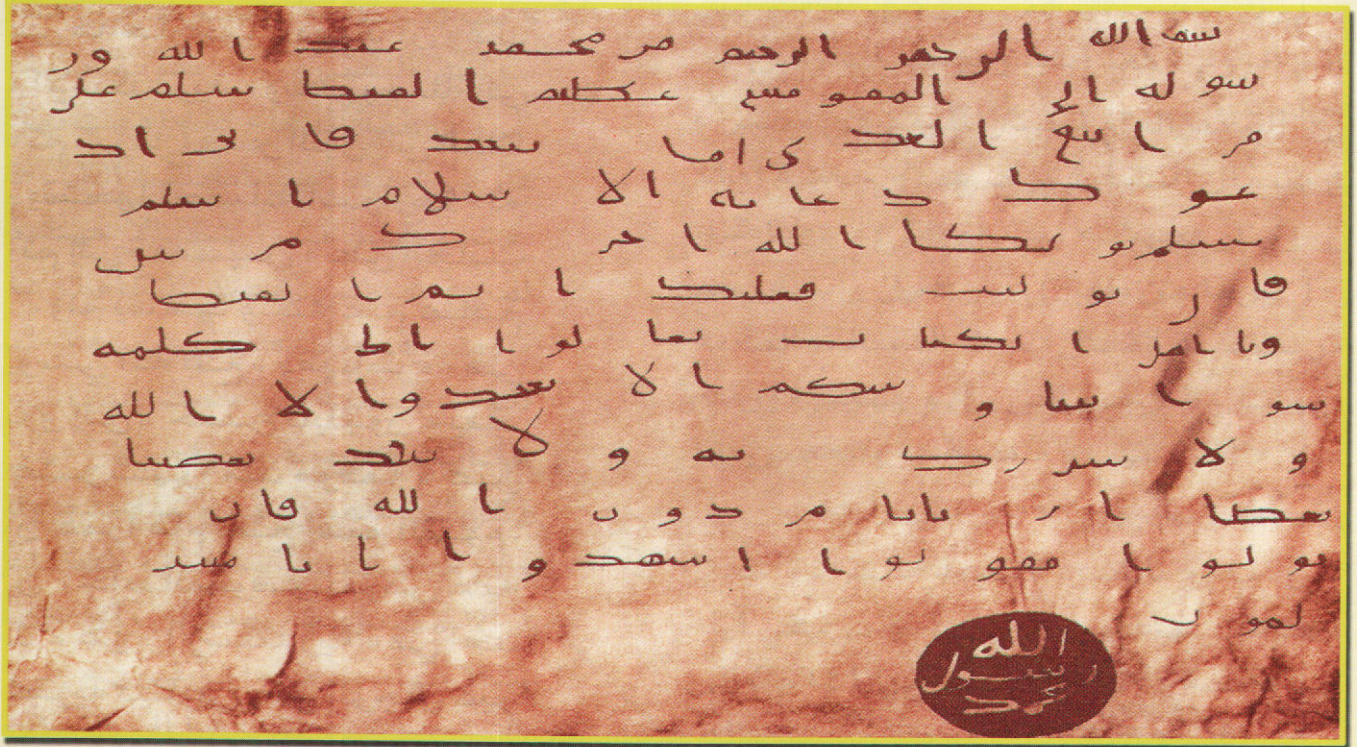 بسم الله الرحمن الرحيم من محمد عبد الله ور
سوله إلى المقوقس عظيم القبط سلام على
من اتبع الهدى اما بعد فانى اد
عوك بدعاية الاسلام اسلم
تسلم يوتك الله اجرك مرتين
فان توليت فعليك اثم القبط
ويا اهل الكتاب تعالوا الى كلمة
سواء بيننا و بينكم الا نعبد الا الله
ولا نشرك به و لا يتخذ بعضنا
بعضا اربابا من دون الله فان
تولوا فقولوا اشهدوا بانا مسـ
لمون
الله
رسول
محمد